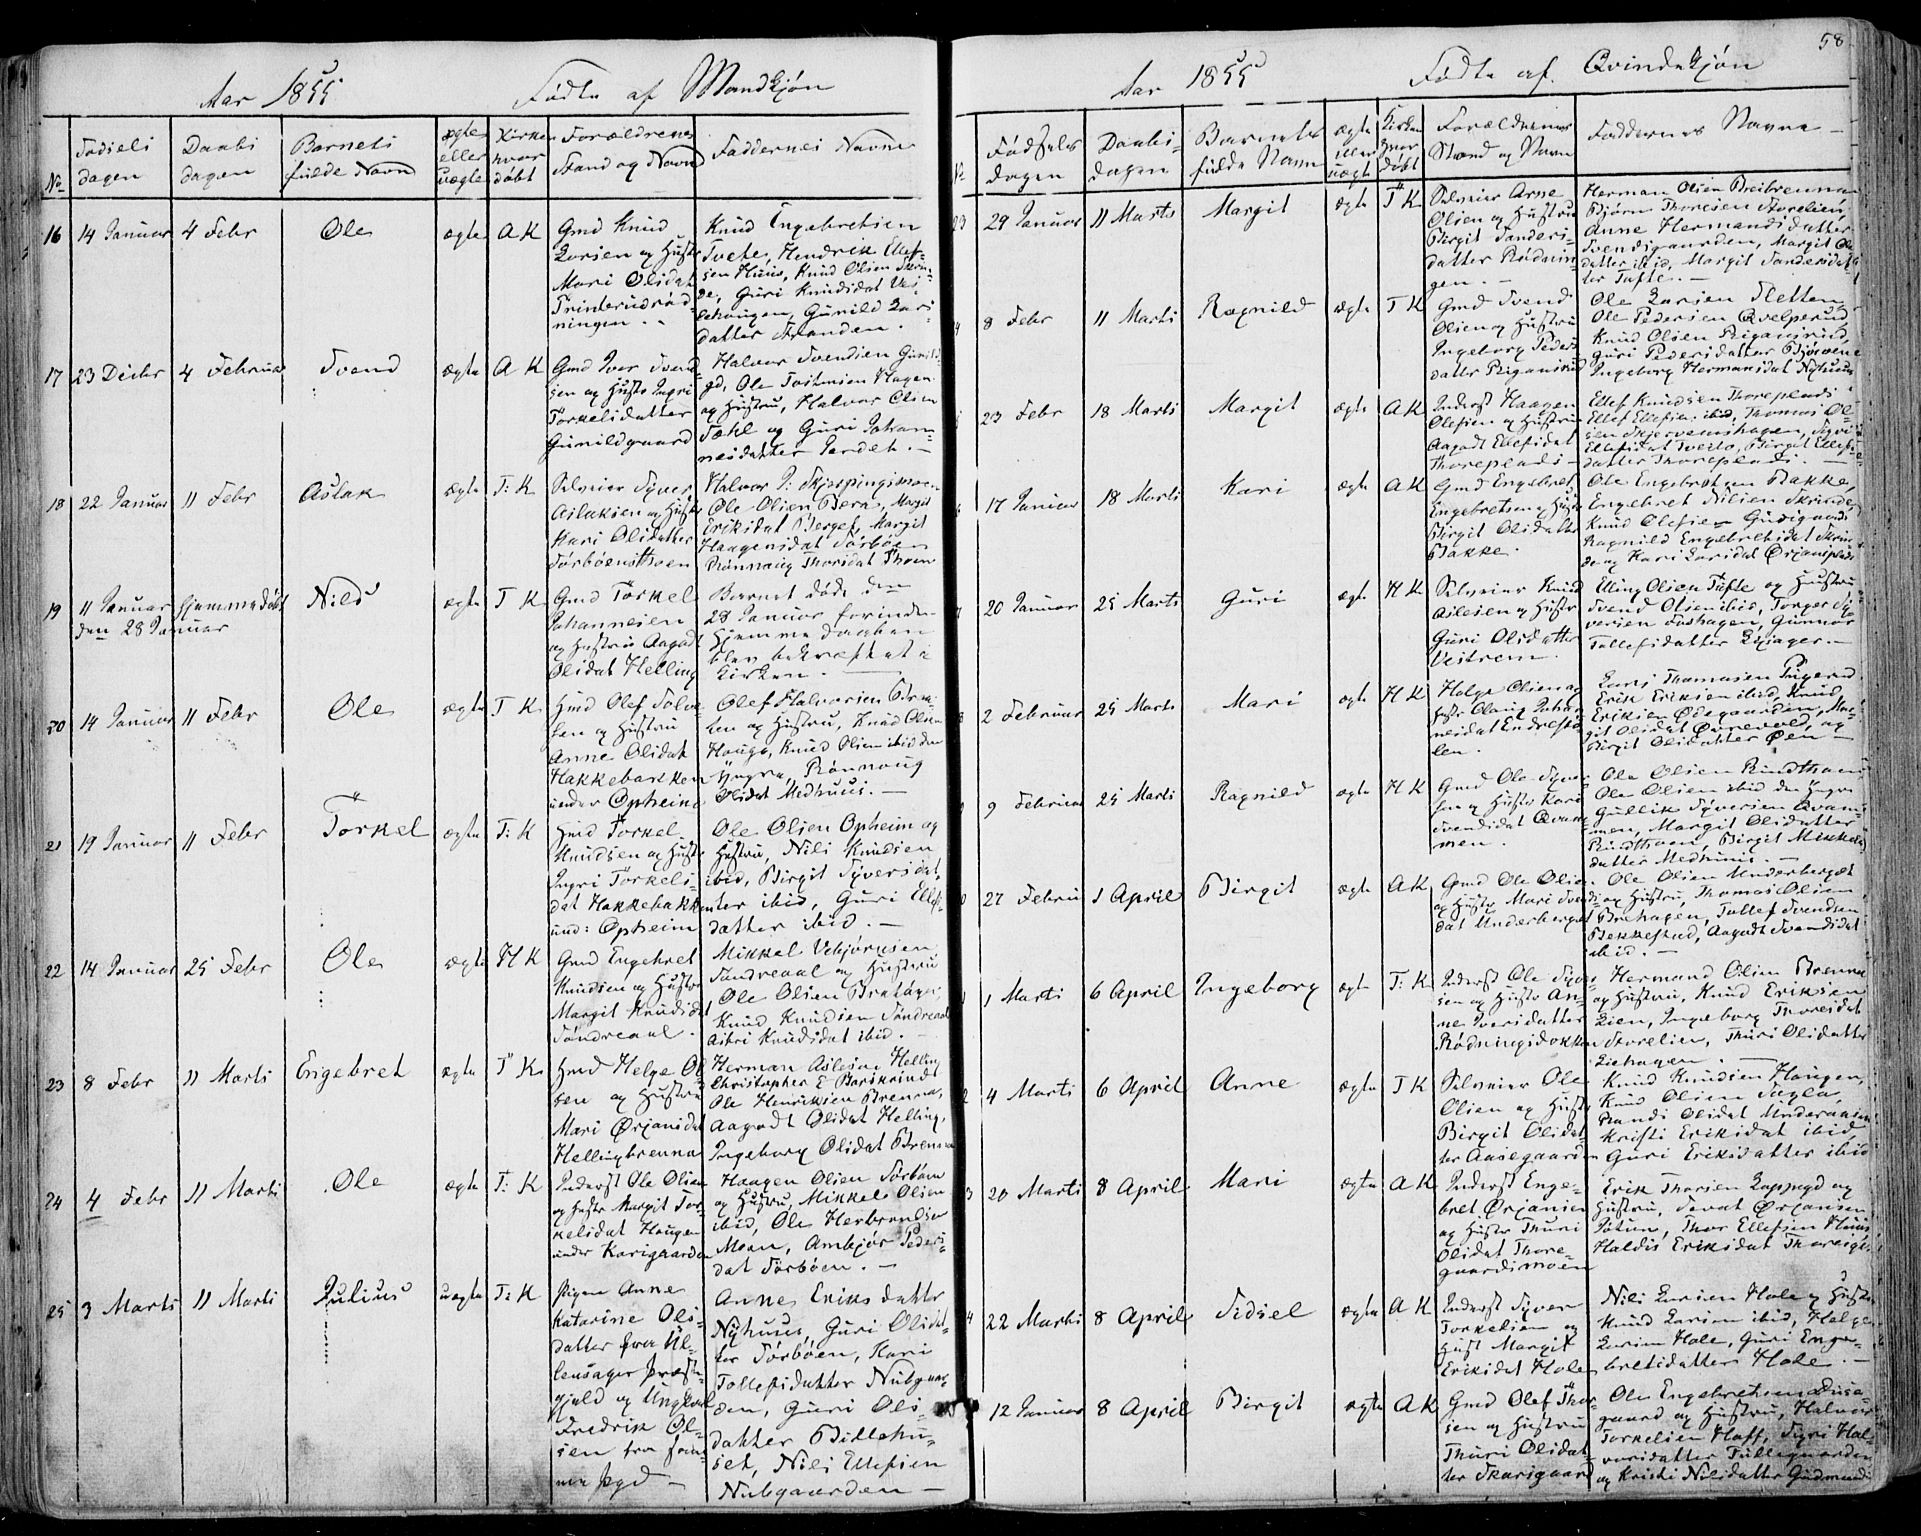 58
Aar 1855 Fødte af Mandkjøn
No
Fødsels dagen
Daabs dagen
Barnets fulde Navn
ægte eller uægte
Kirken hvor døbt
Forældrenes Stand og Navn
Faddernes Navne
16 14 Januar 4 Febr Ole ægte A K
Gmd Knud
Larsen og Hustr
Mari Olsdat
Knud Engebretsen
Tvete, Hendrik Ellef-
sen Huus, Knud Olsen
datter Stranden.
17 23 Decbr 4 Februar Svend ægte A K
Gmd Iver Svend
sen og Hustr Ingri
Torkelsdatter
Gunildgaard
Halvor Svendsen Gunild-
gd, Ole Tostensen Hagen
og Hustru, Halvor Olsen
og Guri Johan-
nesdatter
18 22 Januar 11 Febr Aslak ægte T: K
Selveier Syver
Aslaksen og Hustr
Kari Olsdatter
Ole Olsen Bera, Margit
Eriksdat Berget, Margit
Haagensdat Sørbøen
Rønnaug Thorsdat Thoen
19 11 Januar Hjemmedøbt Nils ægte T K
den 28 Januar
Gmd Torkel
Johannesen
og Hustru Aagodt
Olsdat Helling
Barnet døde den
28 Januar forinden
Hjemmedaaben
blev bekræftet i
Kirken.
20 14 Januar 11 Febr Ole ægte T K
Hmd Olef Tolle-
sen og Hustru
Anne Olsdat
Hakkebakken
under Opheim
Olef Halvorsen
og Hustru, Knud Olsen
Hauge, Knud Olsen ibid den
Yngre, Rønnaug
Olsdat Medhuus.
21 19 Januar 11 Febr Torkel ægte T: K
Hmd Torkel
Knudsen og Hustr
Ingri Torkels-
dat Hakkebakken
und: Opheim
Ole Olsen Opheim og
Hustru, Nils Knudsen
ibid, Birgit Syversdat-
ter ibid, Guri Ellefs-
datter ibid.
22 14 Januar 25 Febr Ole ægte H K
Gmd Engebret
Knudsen og Hustr
Margit Knudsdat
Søndreaal.
Mikkel Vebjørnsen
Søndreaal og Hustru
Ole Olsen
Knud Knudsen Søndreaal
Knudsdat ibid.
23 8 Febr 11 Marts Engebret ægte T K.
Hmd Helge Ol-
sen og Hustru
Mari Ørjansdat
Hellingbrenna
Herman Aslesen Helling
Christopher E
Ole Henriksen Brenna,
Aagodt Olsdat Helling,
Ingeborg Olsdat Brenna
24 4 Febr 11 Marts Ole ægte T: K
Inderst Ole Olsen
og Hustr Margit Tor-
kelsdat Haugen
under Karigaarden
Haagen Olsen Sørbøen
og Hustru, Mikkel Olsen
ibid, Ole Herbrandsen
Moen, Ambjør Peders-
dat Sørbøen.
25 3 Marts 11 Marts Julius uægte T: K
Pigen Anne
Katarine Ols-
datter fra Ul-
lensager Præste-
gjeld og Ungkarl
Fredrik Ol-
sen fra sam-
me Bygd
Anne Eriksdatter
Nyhuus, Guri Olsdat-
ter Sørbøen, Kari
Tollefsdatter Nubgaar-
den, Guri Ols-
datter Billehu-
set, Nils Ellefsen
Nubgaarden
Aar 1855 Fødte af Qvindekjøn
No
Fødsels dagen
Daabs- dagen
Barnets fulde Navn
ægte eller uægte
Kirken hvor døbt
Forældrenes Stand og Navn
Faddernes Navne
29 Januar 11 Marts Margit ægte T K
Selveier Arne
Olsen og Hustru
Birgit Sanders-
datter Rødnin-
gen.
Herman Olsen Breibrenna
Bjørn Thoresen Storelien,
Anne Hermansdatter
Svendsgaarden, Margit Ols-
datter ibid, Margit Sandersdat-
ter Tufte.
8 Febr 11 Marts Ragnild ægte T K
Gmd Svend
Olsen og Hustru
Ingeborg Peders-
datter
Ole Larsen Sletten
Ole Pedersen Qvelprud
Knud Olsen
Guri Pedersdatter
Ingeborg Hermansdat Nyhuus
23 Febr 18 Marts Margit ægte A K
Inderst Haagen
Olefsen og Hustru
Aagodt Ellefsdat
Thoreplads
Ellef Knudsen Thoreplads
Ellef Ellefsen ibid, Thomas Ol-
sen
Ellefsdat Tveto, Birgit Ellefs-
datter Thoreplads.
17 Januar 18 Marts Kari ægte A K
Gmd Engebret
Engebretsen og Hustr
Birgit Olsdatter
Bakke.
Ole Engebretsen Bakke,
Engebret Nilsen Skrinde,
Knud Olefsen
Ragnild Engebretsdat Skrin-
de og Kari Larsdat Ørjansplads
20 Januar 25 Marts Guri ægte H K
Selveier Knud
Aslesen og Hustr
Guri Olsdatter
Vestrem.
Elling Olsen Tufte og Hustru
Svend Olsen ibid, Torger Sy-
versen, Gunnor
Tollefsdatter
2 Februar 25 Marts Mari ægte H K
Helge Olsen og
Hustr Johan-
nesdat Endrestø-
len.
Lars Thomasen
Erik Eriksen ibid, Knud
Eriksen Ødegaarden, Mar-
git Olsdat Øvrevold, og
Birgit Olsdatter Øen
9 Februar 25 Marts Ragnild ægte H K
Gmd Ole Syver-
sen og Hustr Kari
Svendsdat Qvam-
men.
Ole Olsen
Ole Olsen ibid den Yngre
Gullik Syversen Qvam-
men, Margit Olsdatter
Birgit Mikkels-
datter Medhuus.
27 Februar 1 April Birgit ægte A K
Gmd Ole Olsen
og Hustr Mari Svends-
dat Underberget
Ole Olsen Underberget
og Hustru, Thomas Olsen
Brehagen, Tollef Svendsen
Bekkestad, Aagodt Svendsdat
ibid.
1 Marts 6 April Ingeborg ægte T: K
Inderst Ole Syver-
sen og Hustr An-
ne Iversdatter
Rødningsdokken
Hermand Olsen Brenna
og Hustru, Knud Eriksen
Lien, Ingeborg Thoresdat
Storelien, Thuri Olsdatter
Liehagen.
4 Marts 6 April Anne ægte T K
Selveier Ole
Olsen og Hustr
Birgit Olsdat-
ter Aasegaarden
Knud Knudsen Haugen,
Knud Olsen
Randi Olsdat Underaasen
Kristi Eriksdat ibid
Guri Eriksdatter ibid
20 Marts 8 April Mari ægte A K
Inderst Enge-
bret Ørjansen
og Hustr Thuri
Olsdat Thore-
gaardsmoen
Erik Thorsen og
Hustru, Ørjansen
Thor Ellefsen Huus
Haldis Eriksdat
22 Marts 8 April Sidsel ægte A K
Inderst Syver
Torkelsen og
Hust Margit
Eriksdat Hole
Nils Larsen Hole og Hustr
Knud Larsen ibid, Helge
Larsen Hole, Guri Enge-
bretsdatter Hole.
12 Januar 8 April Birgit ægte A K
Gmd Olef Thor-
sen og Hustru
Thuri Olsdat-
ter Skarsgaard
Ole Engebretsen
gaard og Hustru, Halvor
Torkelsen Hoff, Syri Hal-
vorsdatter
og Kristi Nilsdatter